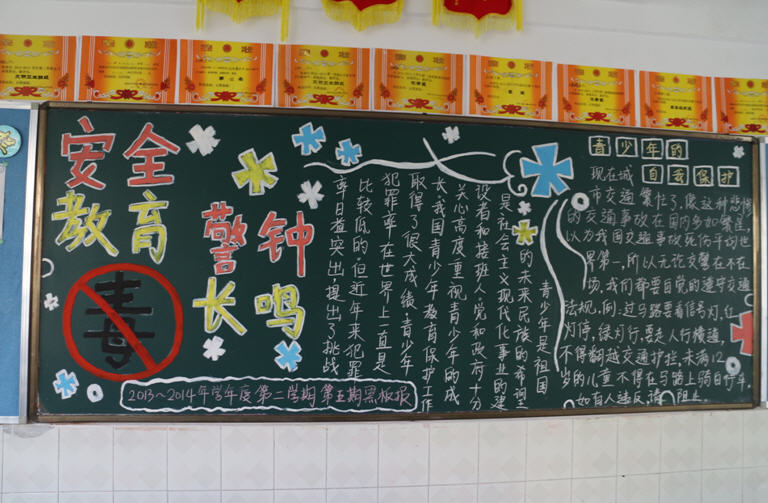 安全
教育
警钟
长鸣
毒
2013~2014年学年度第二学期第五期黑板报
青少年是祖国
的未来民族的希望
是社会主义现代化事业的建
设者和接班人党和政府十分
关心高度重视青少年的成
长.我国青少年教育保护工作
取得了很大成绩.青少年
犯罪率在世界上一直是
比较低的.但近年来犯罪
率日益突出提出了挑战
青少年的
自我保护
现在城
市交通繁忙了,像这种悲惨
的交通事故在国内多如繁星,
以为我国交通事故死伤平均世
界第一,所以无论交警在不在
场,我们都要自觉的遵守交通
法规,例:过马路要看信号灯,红
灯停,绿灯行,要走人行横道,
不得翻越交通护拦,未满12
岁的儿童不得在马路上骑自行车.
如有人违反请阻止.